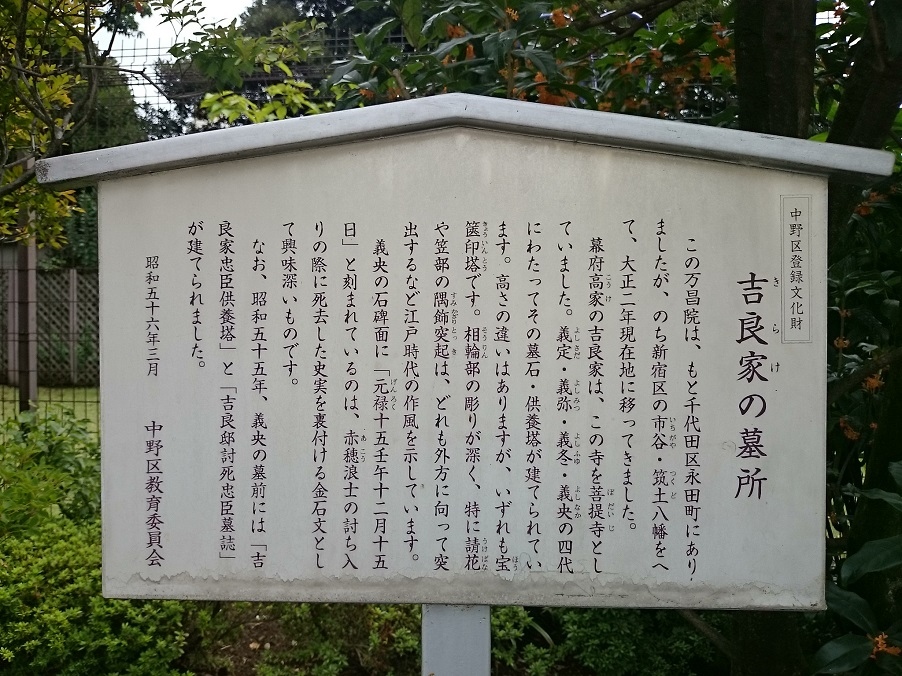 中野区登録文化財
吉良家の墓所
この万昌院は、もと千代田区永田町にあり
ましたが、のち新宿区の市谷・筑土八幡をへ
て、大正二年現在地に移ってきました。
幕府高家の吉良家は、この寺を菩提寺とし
ていました。義定・義弥・義冬・義央の四代
にわたってその墓石・供養塔が建てられてい
ます。高さの違いはありますが、いずれも宝
篋印塔です。相輪部の彫りが深く、特に請花
や笠部の隅飾突起は、どれも外方に向って突
出するなど江戸時代の作風を示しています。
義央の石碑面に「元禄十五壬午十二月十五
日」と刻まれているのは、赤穂浪士の討ち入
りの際に死去した史実を裏付ける金石文とし
て興味深いものです。
なお、昭和五十五年、義央の墓前には「吉
良家忠臣供養塔」と「吉良邸討死忠臣墓誌」
が建てられました。
昭和五十六年三月 中野区教育委員会